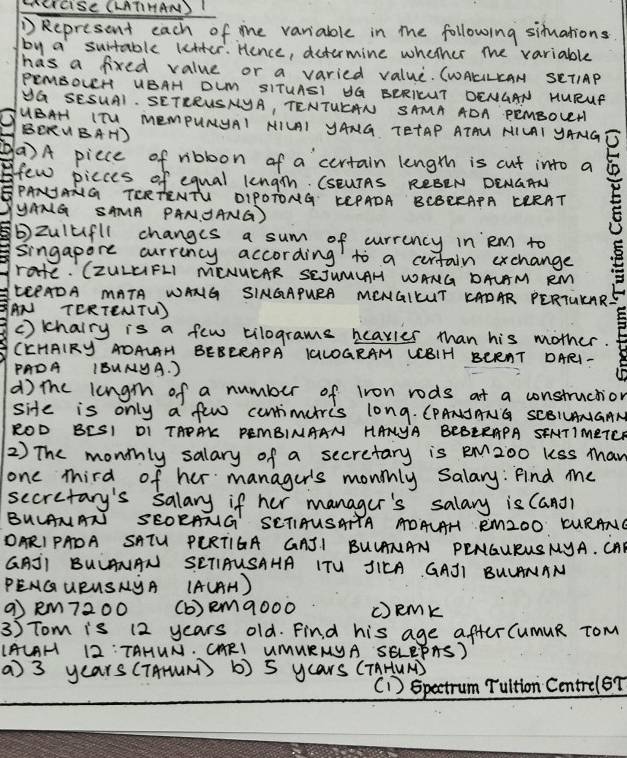 Exercise (LATIHAN) 1
1) Represent each of the variable in the following situations
by a suitable letter. Hence, determine whether the variable
has a fixed value or a varied value. (WAKILKAN SETIAP
PEMBOLEH UBAH DLM SITUASI YG BERIKUT DENGAN HURUF
YG SESUAI. SETERUSNYA, TENTUKAN SAMA ADA PEMBOLEH
UBAH ITU MEMPUNYAI NILAI YANG TETAP ATAU NILAI YANG
BERUBAH)
a) A piece of ribbon of a certain length is cut into a
few pieces of equal length. (SEUTAS REBEN DENGAN
PANJANG TERTENTU DIPOTONG KEPADA BEBERAPA KERAT
YANG SAMA PANJANG)
b) Zulkifli changes a sum of currency in RM to
Singapore currency according to a certain exchange
rate. (ZULKIFLI MENUKAR SEJUMLAH WANG DALAM RM
KEPADA MATA WANG SINGAPURA MENGIKUT KADAR PERTUKAR-
AN TERTENTU)
c) Khairy is a few kilograms heavier than his mother.
(KHAIRY ADALAH BEBERAPA KILOGRAM LEBIH BERAT DARI-
PADA IBUNYA.)
d) The length of a number of iron rods at a construction
site is only a few centimetres long. (PANJANG SEBILANGAN
ROD BESI DI TAPAK PEMBINAAN HANYA BEBERAPA SENTIMETER
2) The monthly salary of a secretary is RM200 less than
one third of her manager's monthly salary. Find the
secretary's salary if her manager's salary is (GAJI
BULANAN SEORANG SETIAUSAHA ADALAH RM200 KURANG
DARIPADA SATU PERTIGA GAJI BULANAN PENGURUSNYA. CAR
GAJI BULANAN SETIAUSAHA ITU JIKA GAJI BULANAN
PENGURUSNYA IALAH)
a) RM7200 (b) RM9000 c) RM K
3) Tom is 12 years old. Find his age after (UMUR TOM
IALAH 12 TAHUN. CARI UMURNYA SELEPAS)
a) 3 years (TAHUN) b) 5 years (TAHUN)
(1) Spectrum Tuition Centre (ST
Spectrum Tuition Centre (STC)